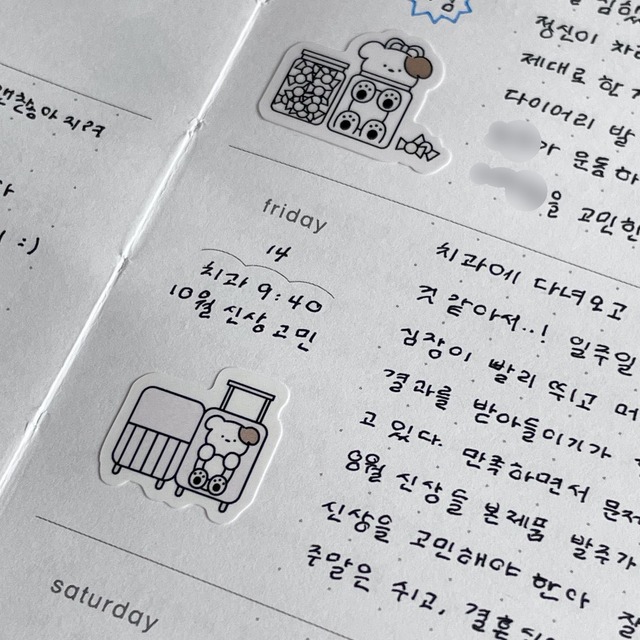 정신이
제대로 한
다이어리 발
가 운동하
을 고민한
:)
friday
14
치과 9:40
10월 신상 고민
치과에 다녀오고
것 같아서..! 일주일
심장이 빨리 뛰고
결과를 받아들이기가
고 있다. 만족하면서
8월 신상들 본제품 발주가
신상을 고민해야 한다
주말은 쉬고,
saturday